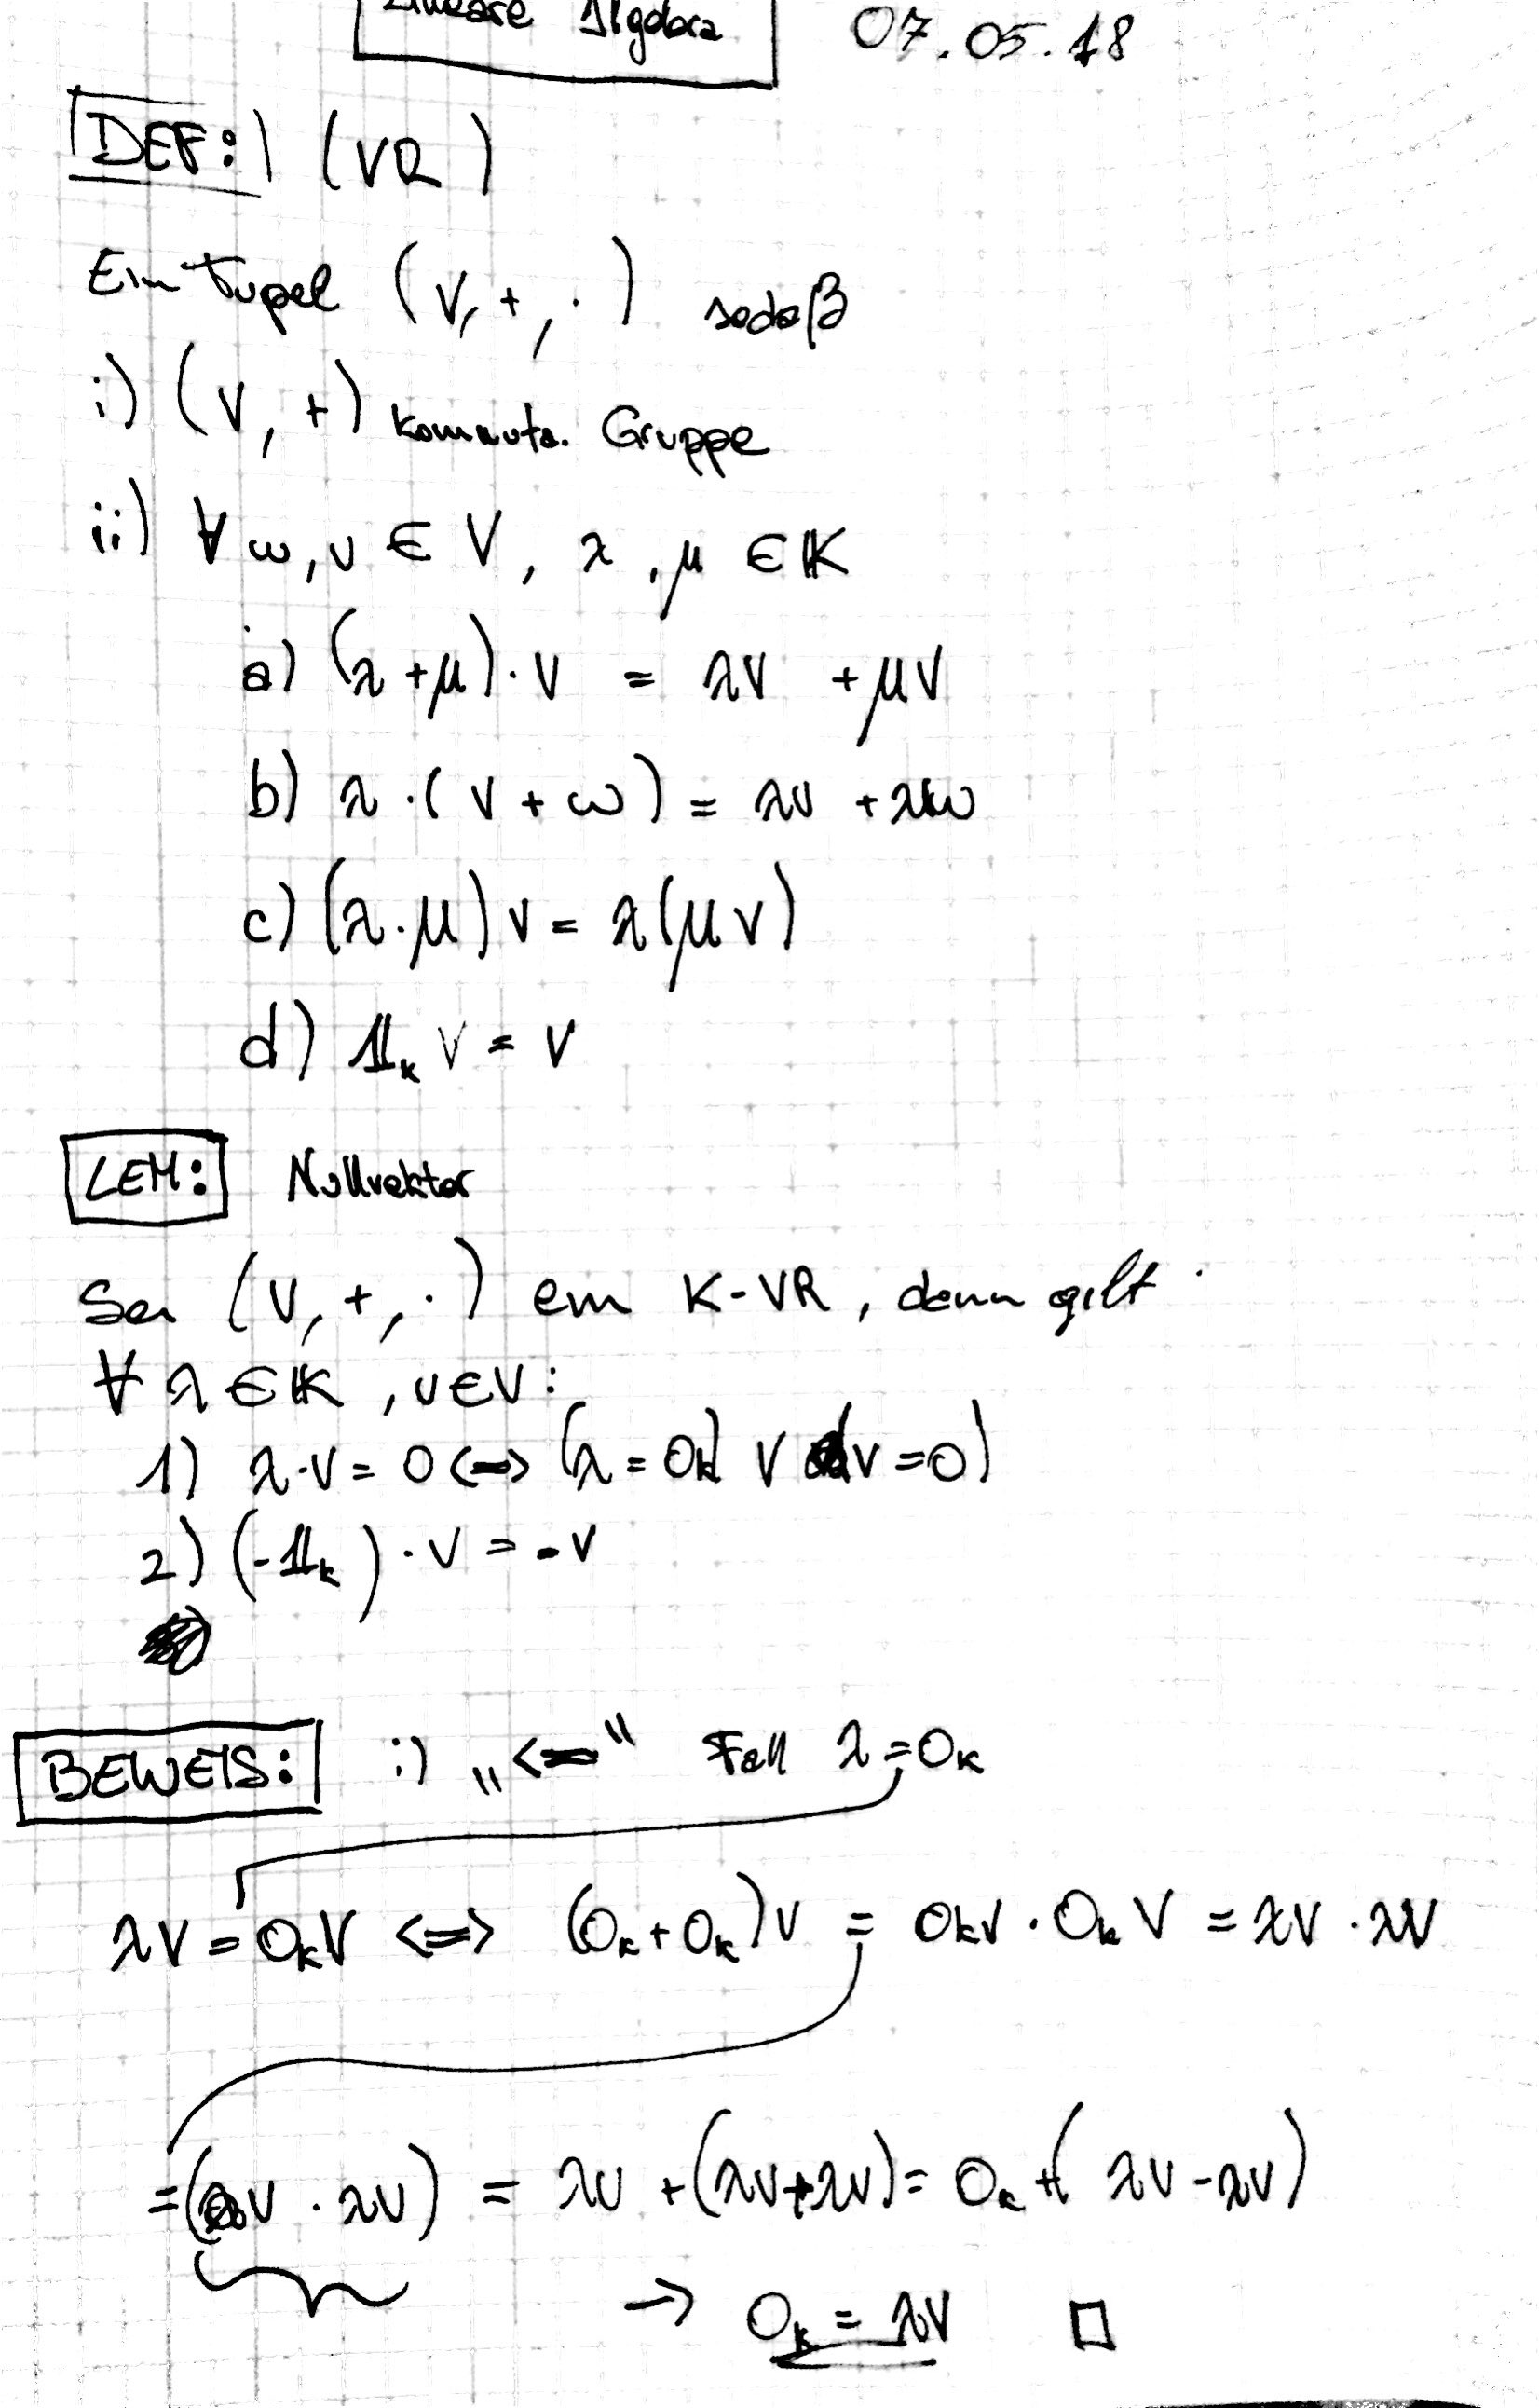 Lineare Algebra 07.05.18
DEF: (VR)
Ein Tupel (V, +, ·) sodaß
i) (V, +) kommuta. Gruppe
ii) ∀ ω, v ∈ V, λ, μ ∈ 𝕂
a) (λ + μ) · v = λv + μv
b) λ · (v + ω) = λv + λω
c) (λ · μ) v = λ(μv)
d) 𝟙ₖ v = v
LEM: Nullvektor
Sei (V, +, ·) ein K-VR, dann gilt
∀ λ ∈ 𝕂, v ∈ V:
1) λ · v = 0 <=> (λ = 0ₖ) ∨ (v = 0)
2) (-𝟙ₖ) · v = -v
BEWEIS: i) „<=“ Fall λ = 0ₖ
λv = 0ₖv <=> (0ₖ + 0ₖ)v = 0ₖv · 0ₖv = λv · λv
= (λv · λv) = λv + (λv + λv) = 0ₖ + (λv - λv)
→ 0ₖ = λv □